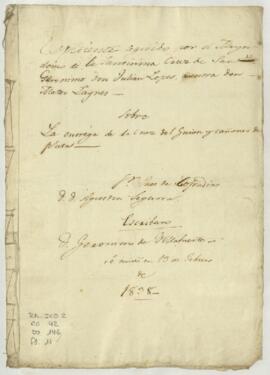 Expediente seguido por el Mayor
domo de la Santisima Cruz de San
Geronimo don Julian Lopes, contra don
Mateo Lagnes
Sobre
La entrega de la Cruz del Guion y cañones de
plata
Jues de Cofradias
D. D. Agustin
Escribano
D. Geronimo de Villafuerte
en 13 de Febrero
de
1838